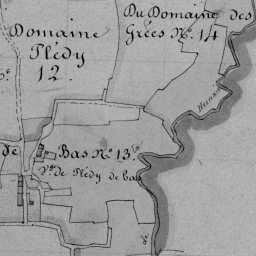 Du Domaine des
Grées N.º 14
Domaine
Plédy
12.
de
Bas N.º 13.
V.ge de Plédy de bas